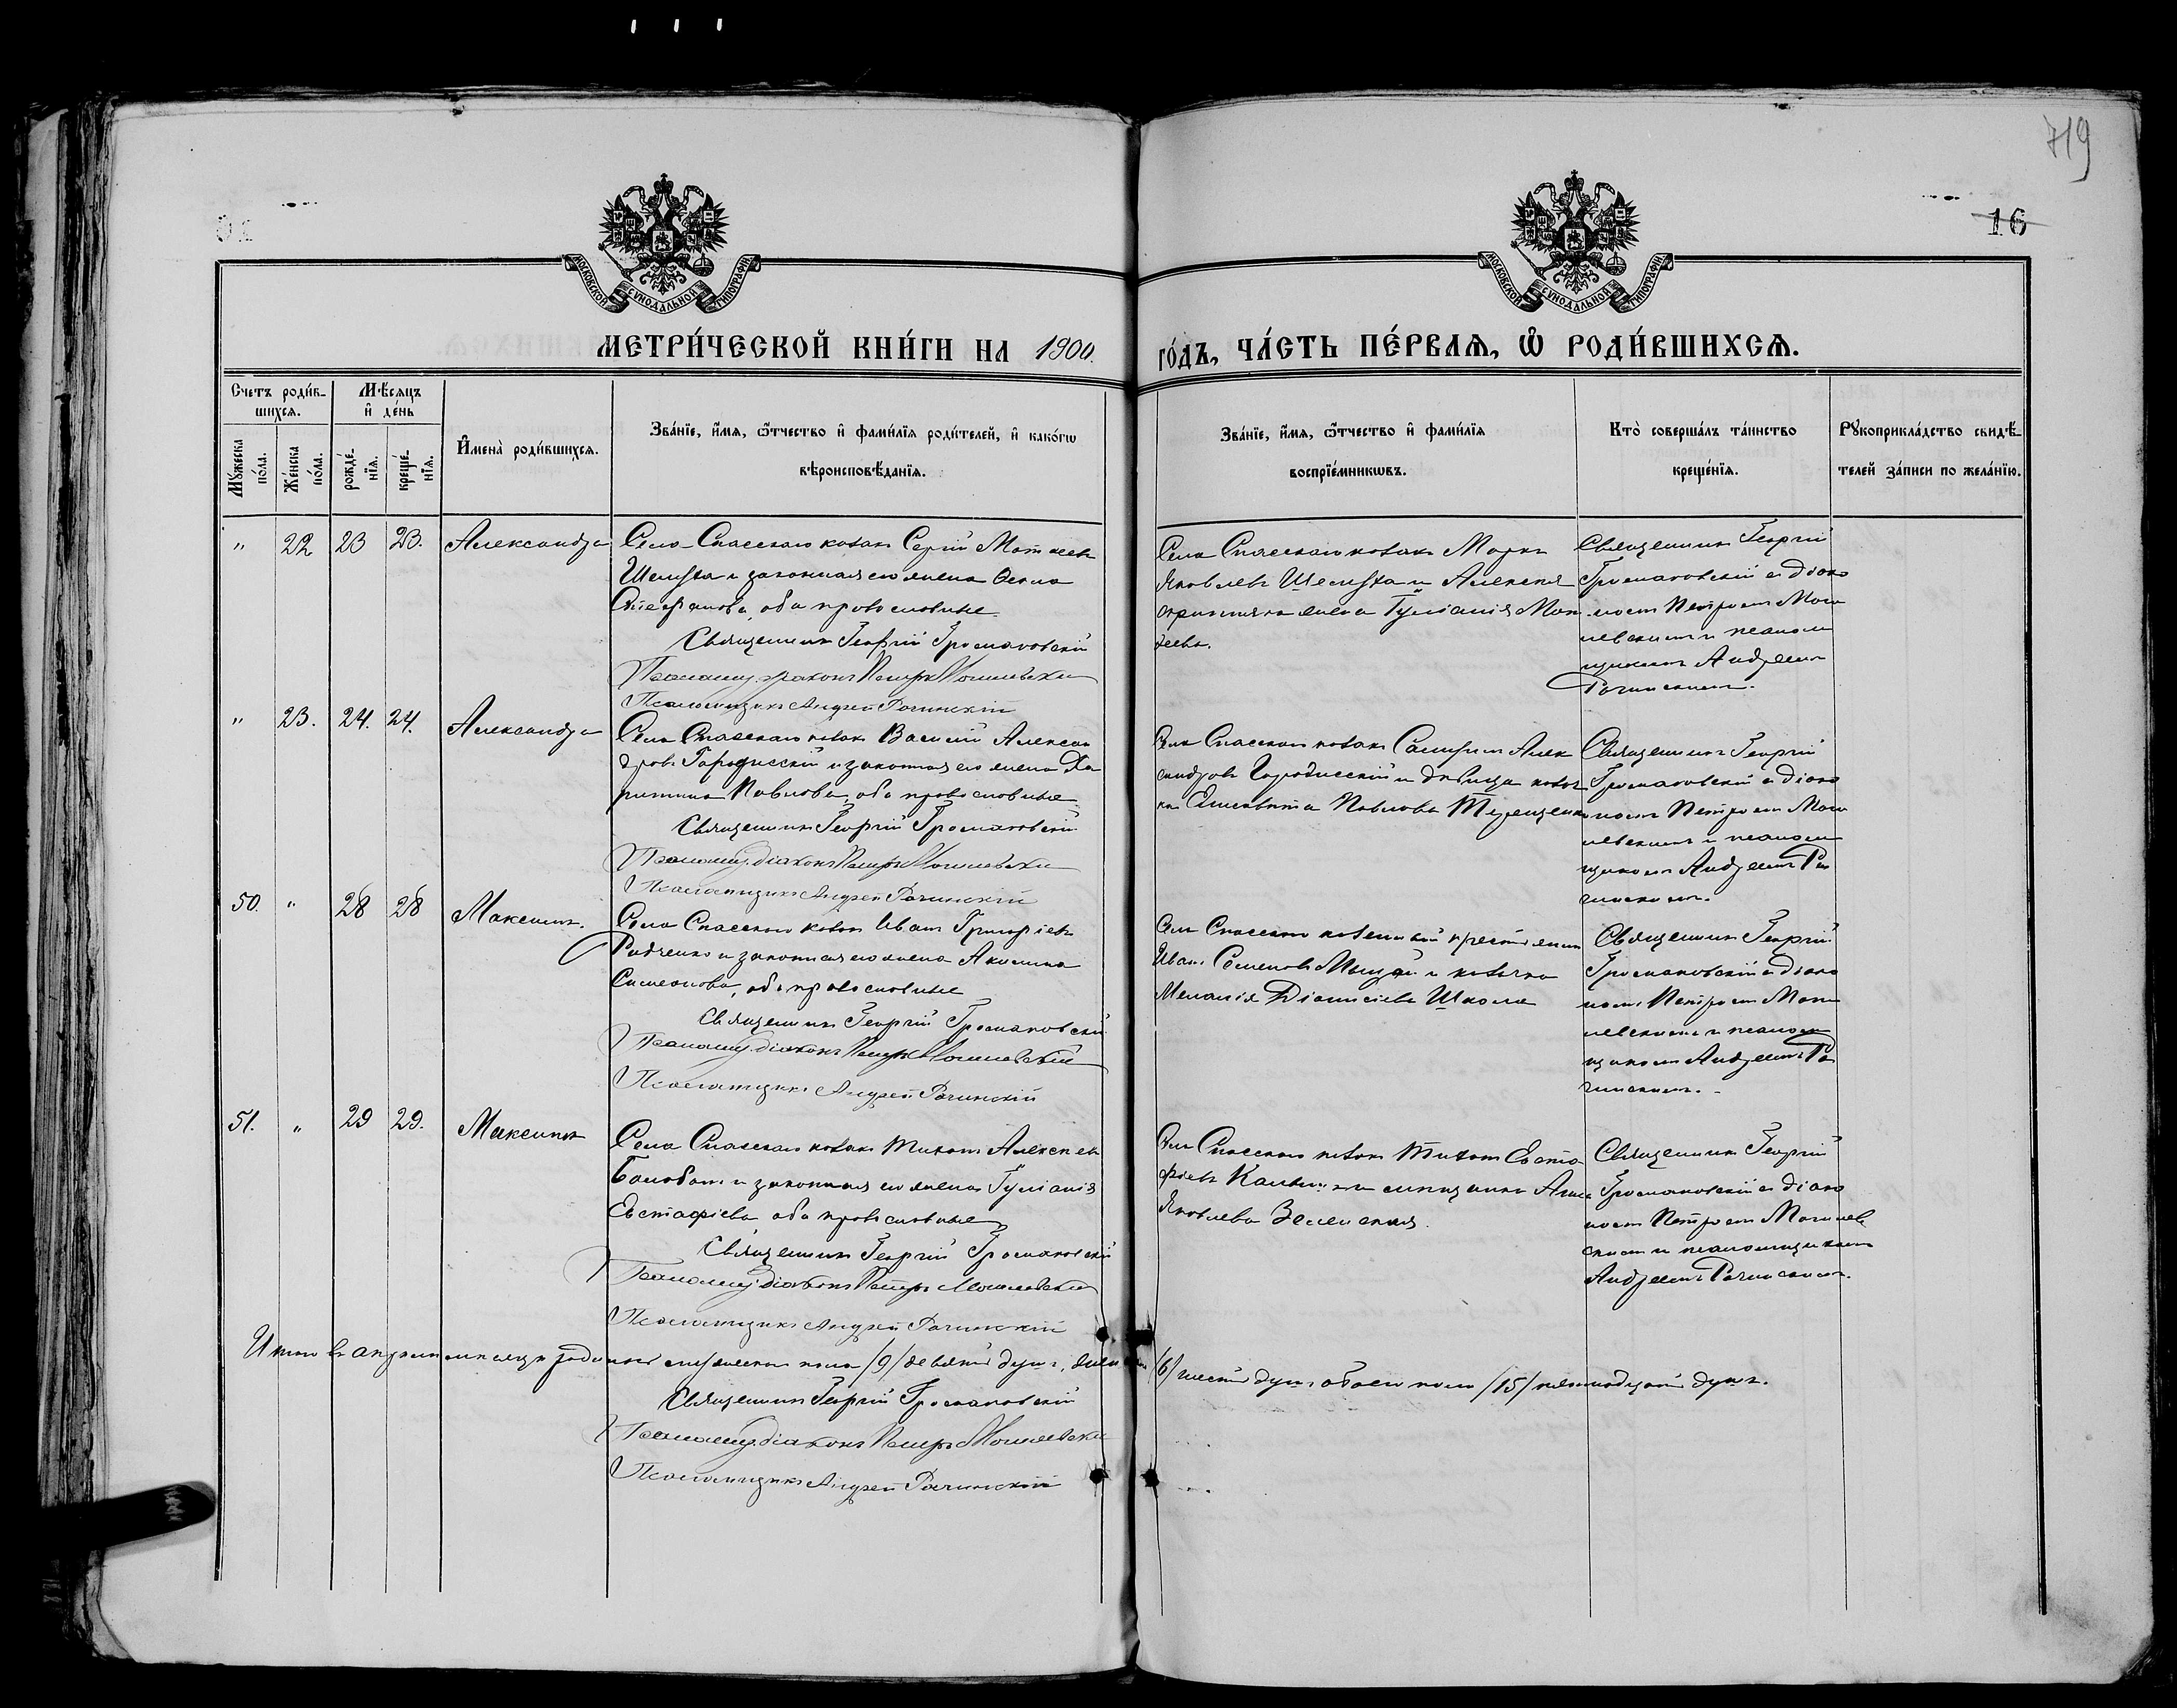 719
16
МОСКОВСКОЙ СѴНОДАЛЬНОЙ ТИПОГРАФІИ
МОСКОВСКОЙ СѴНОДАЛЬНОЙ ТИПОГРАФІИ
МЕТРИ́ЧЕСКОЙ КНИ́ГИ НА 1900. ГО́ДЪ, ЧА́СТЬ ПЕ́РВАѦ, Ѽ РОДИ́ВШИХСѦ.
Счетъ роди́в-
шихсѧ.
Мѣ́сѧцъ
и҆ де́нь
Мꙋжеска по́ла.
Же́нска по́ла.
рожде́-нїѧ.
креще́-нїѧ.
И҆мена̀ роди́вшихсѧ.
Зва́нїе, и҆́мѧ, ѻ҆́тчество и҆ фами́лїѧ роди́телей, и҆ како́гѡ
вѣроисповѣ́данїѧ.
Зва́нїе, и҆́мѧ, ѻ҆́тчество и҆ фами́лїѧ
воспрїе́мникѡвъ.
Кто̀ соверша́лъ та́инство
креще́нїѧ.
Рꙋкоприкла́дство свидѣ́-
телей за́писи по жела́нїю.
" 22 23 23. Александра
Села Спасскаго козакъ Сергій Матѳеевъ
Шелуха и законная его жена Ѳекла
Стефанова, оба православные
Священникъ Георгій Громаковскій
Псаломщ. діаконъ Петръ Могилевскій
Псаломщикъ Андрей Рачинскій
Села Спасскаго козакъ Маркъ
Яковлевъ Шелуха и Алексея
жена Іуліанія Мат
ѳеева.
Священникъ Георгій
Громаковскій с діако
номъ Петромъ Моги
левскимъ и псалом
щикомъ Андреемъ
Рачинскимъ.
" 23. 24. 24. Александра
Села Спасскаго козакъ Василій Алексан
дровъ Городисскій и законная его жена Ха
ритина Павлова, оба православные
Священникъ Георгій Громаковскій
Псаломщ. діаконъ Петръ Могилевскій
Псаломщикъ Андрей Рачинскій
Села Спасскаго козакъ Алек
сандровъ Городисскій и дѣвица козач
ка Елисавета Павлова Терещенкова
Священникъ Георгій
Громаковскій с діако
номъ Петромъ Моги
левскимъ и псалом
щикомъ Андреемъ Ра
чинскимъ.
50. " 28 28 Максимъ.
Села Спасскаго козакъ Иванъ Григоріевъ
Радченко и законная его жена Акилина
Симеонова, оба православные
Священникъ Георгій Громаковскій
Псаломщ. діаконъ Петръ Могилевскій
Псаломщикъ Андрей Рачинскій
Села Спасскаго казенный крестьянинъ
Иванъ Семеновъ и козачка
Меланія Діонисіева Школа
Священникъ Георгій
Громаковскій с діако
номъ Петромъ Моги
левскимъ и псалом
щикомъ Андреемъ Ра
чинскимъ.
51. " 29 29. Максимъ
Села Спасскаго козакъ Тихонъ Алексѣевъ
Балабанъ и законная его жена Іуліанія
Евстафіева, оба православные
Священникъ Георгій Громаковскій
Псаломщ. діаконъ Петръ Могилевскій
Псаломщикъ Андрей Рачинскій
Села Спасскаго козакъ Титъ Евста
фіевъ и мѣщанка Анна
Яковлева Зеленская.
Священникъ Георгій
Громаковскій с діако
номъ Петромъ Могилев
скимъ и псаломщикомъ
Андреемъ Рачинскимъ.
Итого въ апрѣлѣ мѣсяцѣ родилось мужескаго пола /9/ девять душъ, женскаго /6/ шесть душъ обоего пола /15/ пятнадцать душъ.
Священникъ Георгій Громаковскій
Псаломщ. діаконъ Петръ Могилевскій
Псаломщикъ Андрей Рачинскій